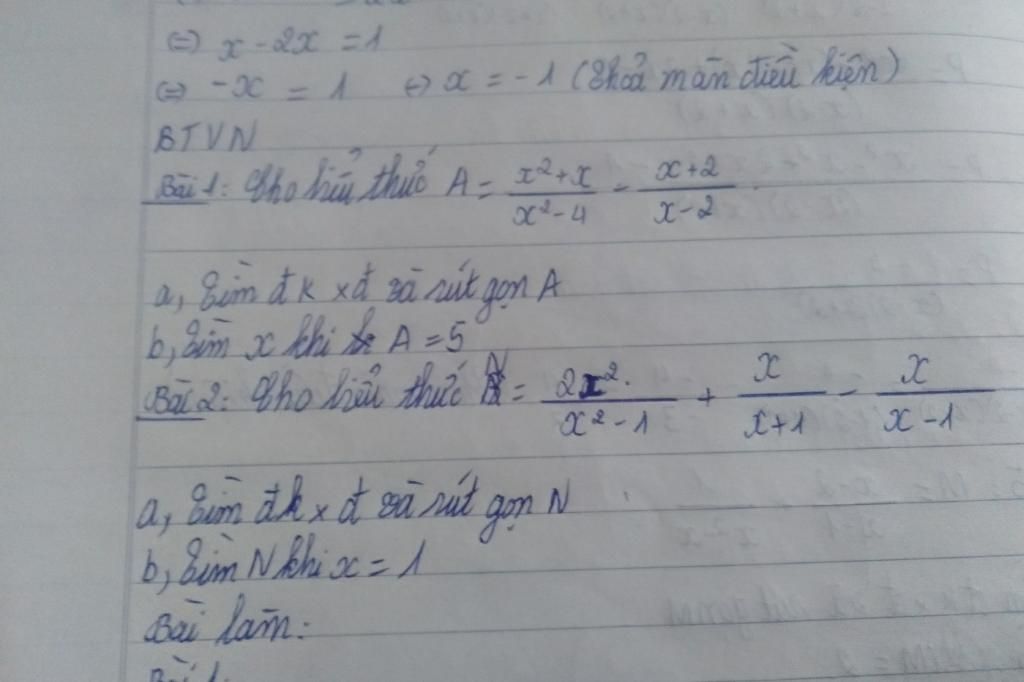 ⇔ x - 2x = 1
⇔ -x = 1 ⇔ x = -1 (Thoả mãn điều kiện)
BTVN
Bài 1: Cho biểu thức A = \frac{x²+x}{x²-4} - \frac{x+2}{x-2}
a, Tìm đkxđ và rút gọn A
b, Tìm x khi A = 5
Bài 2: Cho biểu thức N = \frac{2x²}{x²-1} + \frac{x}{x+1} - \frac{x}{x-1}
a, Tìm đkxđ và rút gọn N
b, Tìm N khi x = 1
Bài làm:
Bài 1: